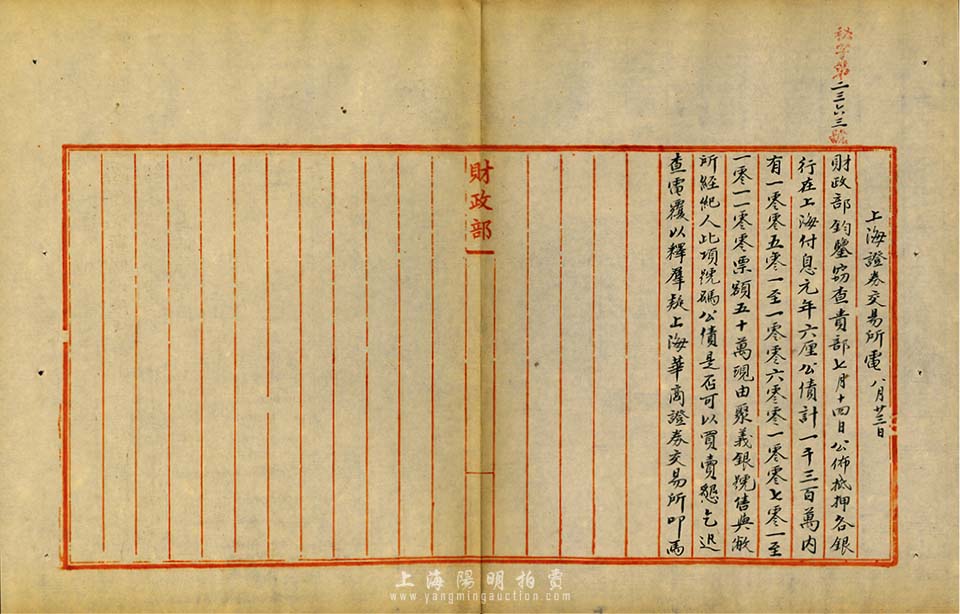 秘字第二三六三號
上海證券交易所電 八月廿三日
財政部鈞鑒竊查貴部七月十四日公佈抵押各銀
行在上海付息元年六厘公債計一千三百萬內
有一零零五零一至一零零六零零一零零七零一至
一零一一零零票額五十萬現由聚義銀號售與敝
所經紀人此項號碼公債是否可以買賣懇乞迅
查電覆以釋羣疑上海華商證券交易所叩禡
財政部
上海陽明拍賣
www.yangmingauction.com